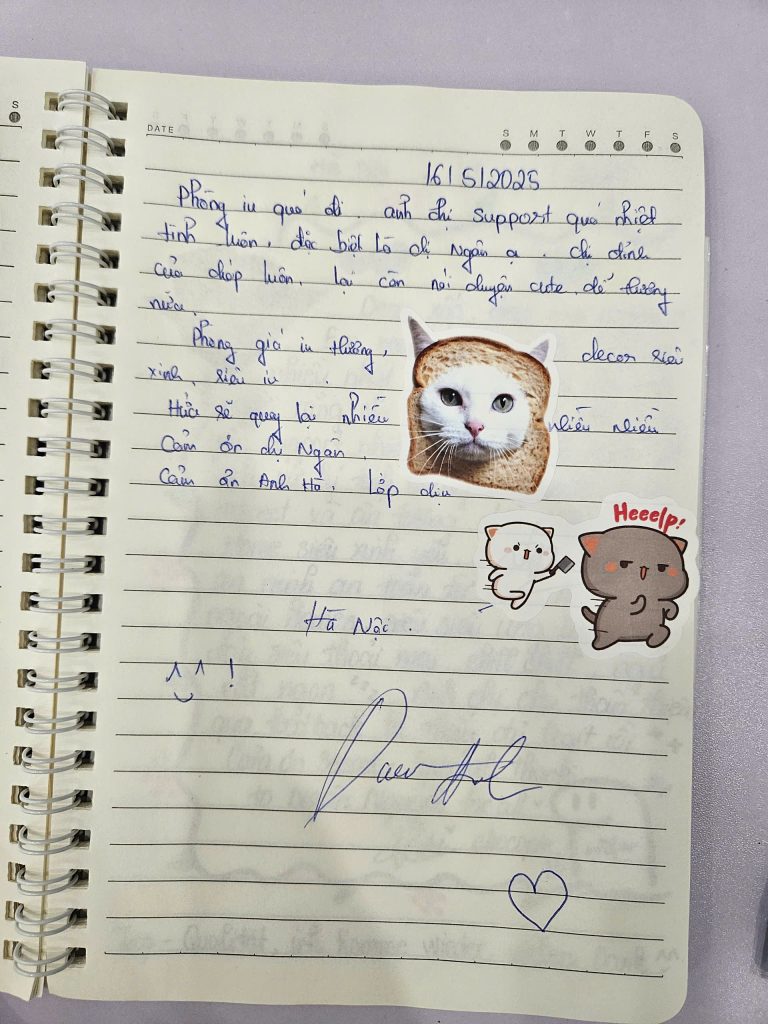 S
DATE
S M T W T F S
16/5/2025
Phòng iu quá đi. anh chị support quá nhiệt
tình luôn, đặc biệt là chị Ngân ạ. Chị đỉnh
của chóp luôn, lại còn nói chuyện cute, dễ thương
nữa.
Phòng giá iu thương, decor siêu
xinh, siêu iu.
Hứa sẽ quay lại nhiều nhiều nhiều
Cảm ơn chị Ngân.
Cảm ơn Anh Hà. Lốp dịu
Heeelp!
Hà Nội.
^ ^ !